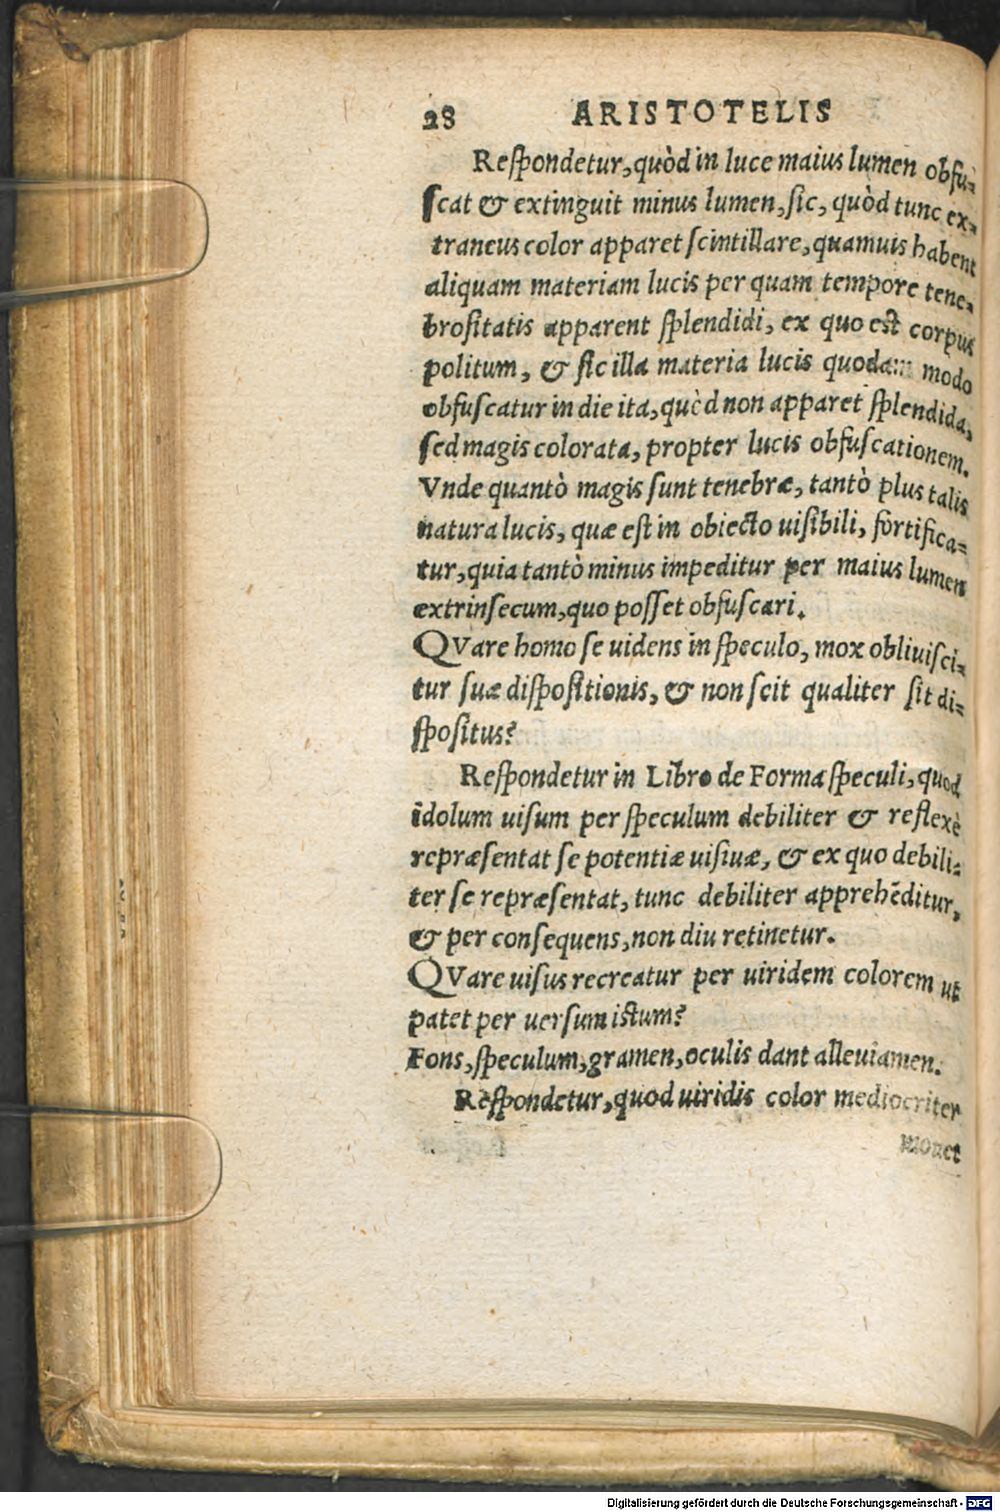 28 ARISTOTELIS
Reſpondetur, quòd in luce maius lumen obfu-
ſcat & extinguit minus lumen, ſic, quòd tunc ex-
traneus color apparet ſcintillare, quamuis habent
aliquam materiam lucis per quam tempore tene-
broſitatis apparent ſplendidi, ex quo eſt corpus
politum, & ſic illa materia lucis quodam modo
obfuſcatur in die ita, quòd non apparet ſplendida,
ſed magis colorata, propter lucis obfuſcationem.
Vnde quantò magis ſunt tenebræ, tantò plus talis
natura lucis, quæ eſt in obiecto uiſibili, fortifica-
tur, quia tantò minus impeditur per maius lumen
extrinſecum, quo poſſet obfuſcari.
QVare homo ſe uidens in ſpeculo, mox obliuiſci-
tur ſuæ diſpoſitionis, & non ſcit qualiter ſit di-
ſpoſitus?
Reſpondetur in Libro de Forma ſpeculi, quod
idolum uiſum per ſpeculum debiliter & reflexè
repræſentat ſe potentiæ uiſiuæ, & ex quo debili-
ter ſe repræſentat, tunc debiliter apprehēditur,
& per conſequens, non diu retinetur.
QVare uiſus recreatur per uiridem colorem ut
patet per uerſum iſtum?
Fons, ſpeculum, gramen, oculis dant alleuiamen.
Reſpondetur, quod uiridis color mediocriter
mouet
Digitalisierung gefördert durch die Deutsche Forschungsgemeinschaft - DFG